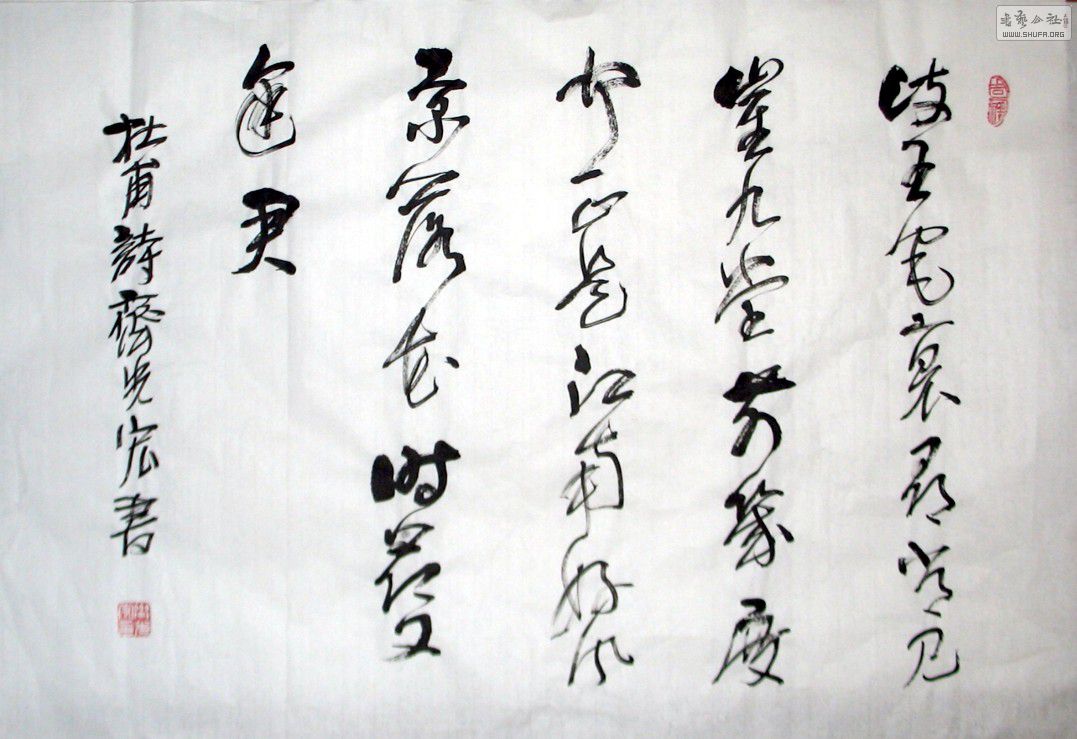 岐王宅裏尋常見
崔九堂前幾度
聞正是江南好風
景落花時節又
逢君
杜甫詩齊光宏書
書藝公社
WWW.SHUFA.ORG